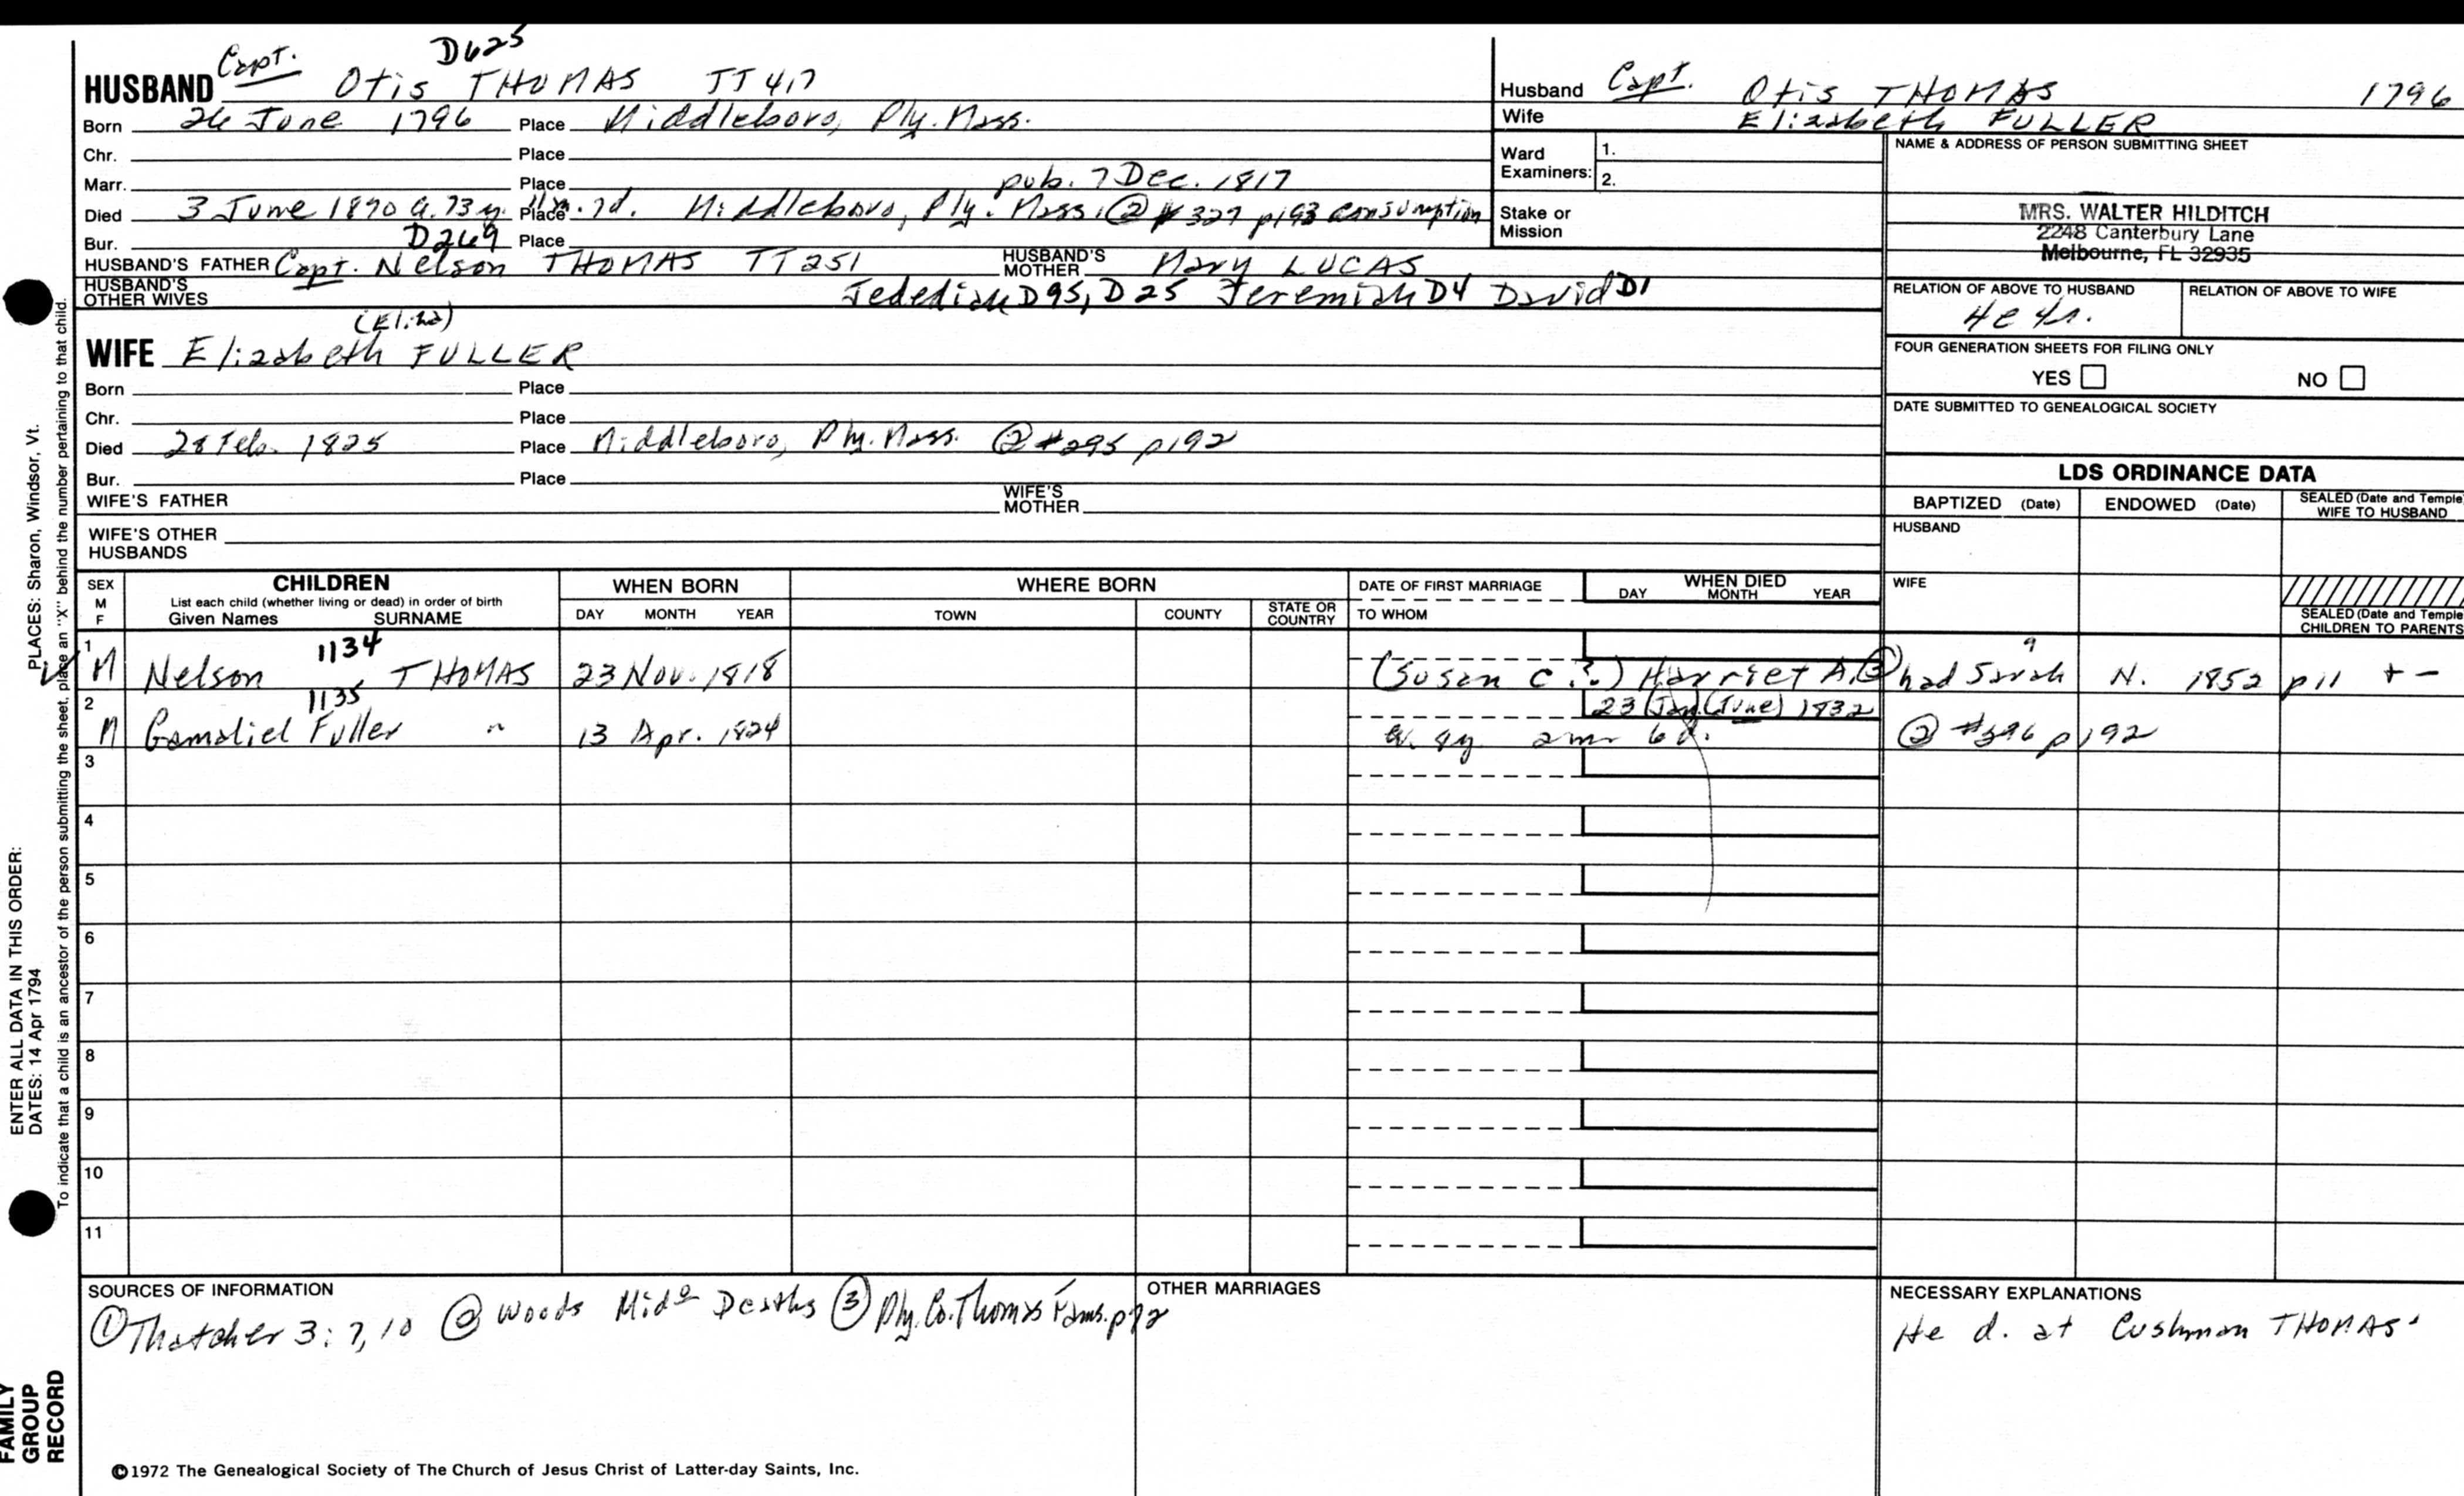 D625
HUSBAND Capt. Otis THOMAS TT 417
Born 26 June 1796 Place Middleboro, Ply. Mass.
Chr. Place
Marr. Place pub. 7 Dec. 1817
Died 3 June 1870 a. 73 y. 11 m. 7d. Place Middleboro, Ply. Mass. @ # 327 p193 consumption
Bur. Place
D269
HUSBAND'S FATHER Capt. Nelson THOMAS TT 251 HUSBAND'S MOTHER Mary LUCAS
HUSBAND'S OTHER WIVES Jedediah D95, D25 Jeremiah D4 David D1
(Eliza)
WIFE Elizabeth FULLER
Born Place
Chr. Place
Died 28 Feb. 1825 Place Middleboro, Ply. Mass. ② #295 p192
Bur. Place
WIFE'S FATHER WIFE'S MOTHER
WIFE'S OTHER HUSBANDS
Husband Capt. Otis THOMAS 1796
Wife Elizabeth FULLER
Ward Examiners: 1.
2.
Stake or Mission
NAME & ADDRESS OF PERSON SUBMITTING SHEET
MRS. WALTER HILDITCH
2248 Canterbury Lane
Melbourne, FL 32935
RELATION OF ABOVE TO HUSBAND RELATION OF ABOVE TO WIFE
FOUR GENERATION SHEETS FOR FILING ONLY
YES NO
DATE SUBMITTED TO GENEALOGICAL SOCIETY
LDS ORDINANCE DATA
BAPTIZED (Date) ENDOWED (Date) SEALED (Date and Temple
WIFE TO HUSBAND
HUSBAND
WIFE
SEALED (Date and Temple
CHILDREN TO PARENTS
SEX M F CHILDREN WHEN BORN WHERE BORN DATE OF FIRST MARRIAGE WHEN DIED
List each child (whether living or dead) in order of birth
Given Names SURNAME DAY MONTH YEAR TOWN COUNTY STATE OR COUNTRY TO WHOM DAY MONTH YEAR
1134
1 M Nelson THOMAS 23 Nov. 1818 (Susan C ?.) Harriet A. ③ had Sarah N. 1852 p11 + -
1135
23 (Jan) (June) 1832
2 M Gamaliel Fuller " 13 Apr. 1824 a. 8y 2m 6d. ② p192
3
4
5
6
7
8
9
10
11
SOURCES OF INFORMATION
① Thatcher 3: 7, 10 ② Woods Mido Deaths ③ Ply. Co. Thomas Fams. p72
OTHER MARRIAGES
NECESSARY EXPLANATIONS
He d. at Cushman THOMAS'
©1972 The Genealogical Society of The Church of Jesus Christ of Latter-day Saints, Inc.
PLACES: Sharon, Windsor, Vt.
ENTER ALL DATA IN THIS ORDER:
DATES: 14 Apr 1794
To indicate that a child is an ancestor of the person submitting the sheet, place an "X" behind the number pertaining to that child.
FAMILY
GROUP
RECORD